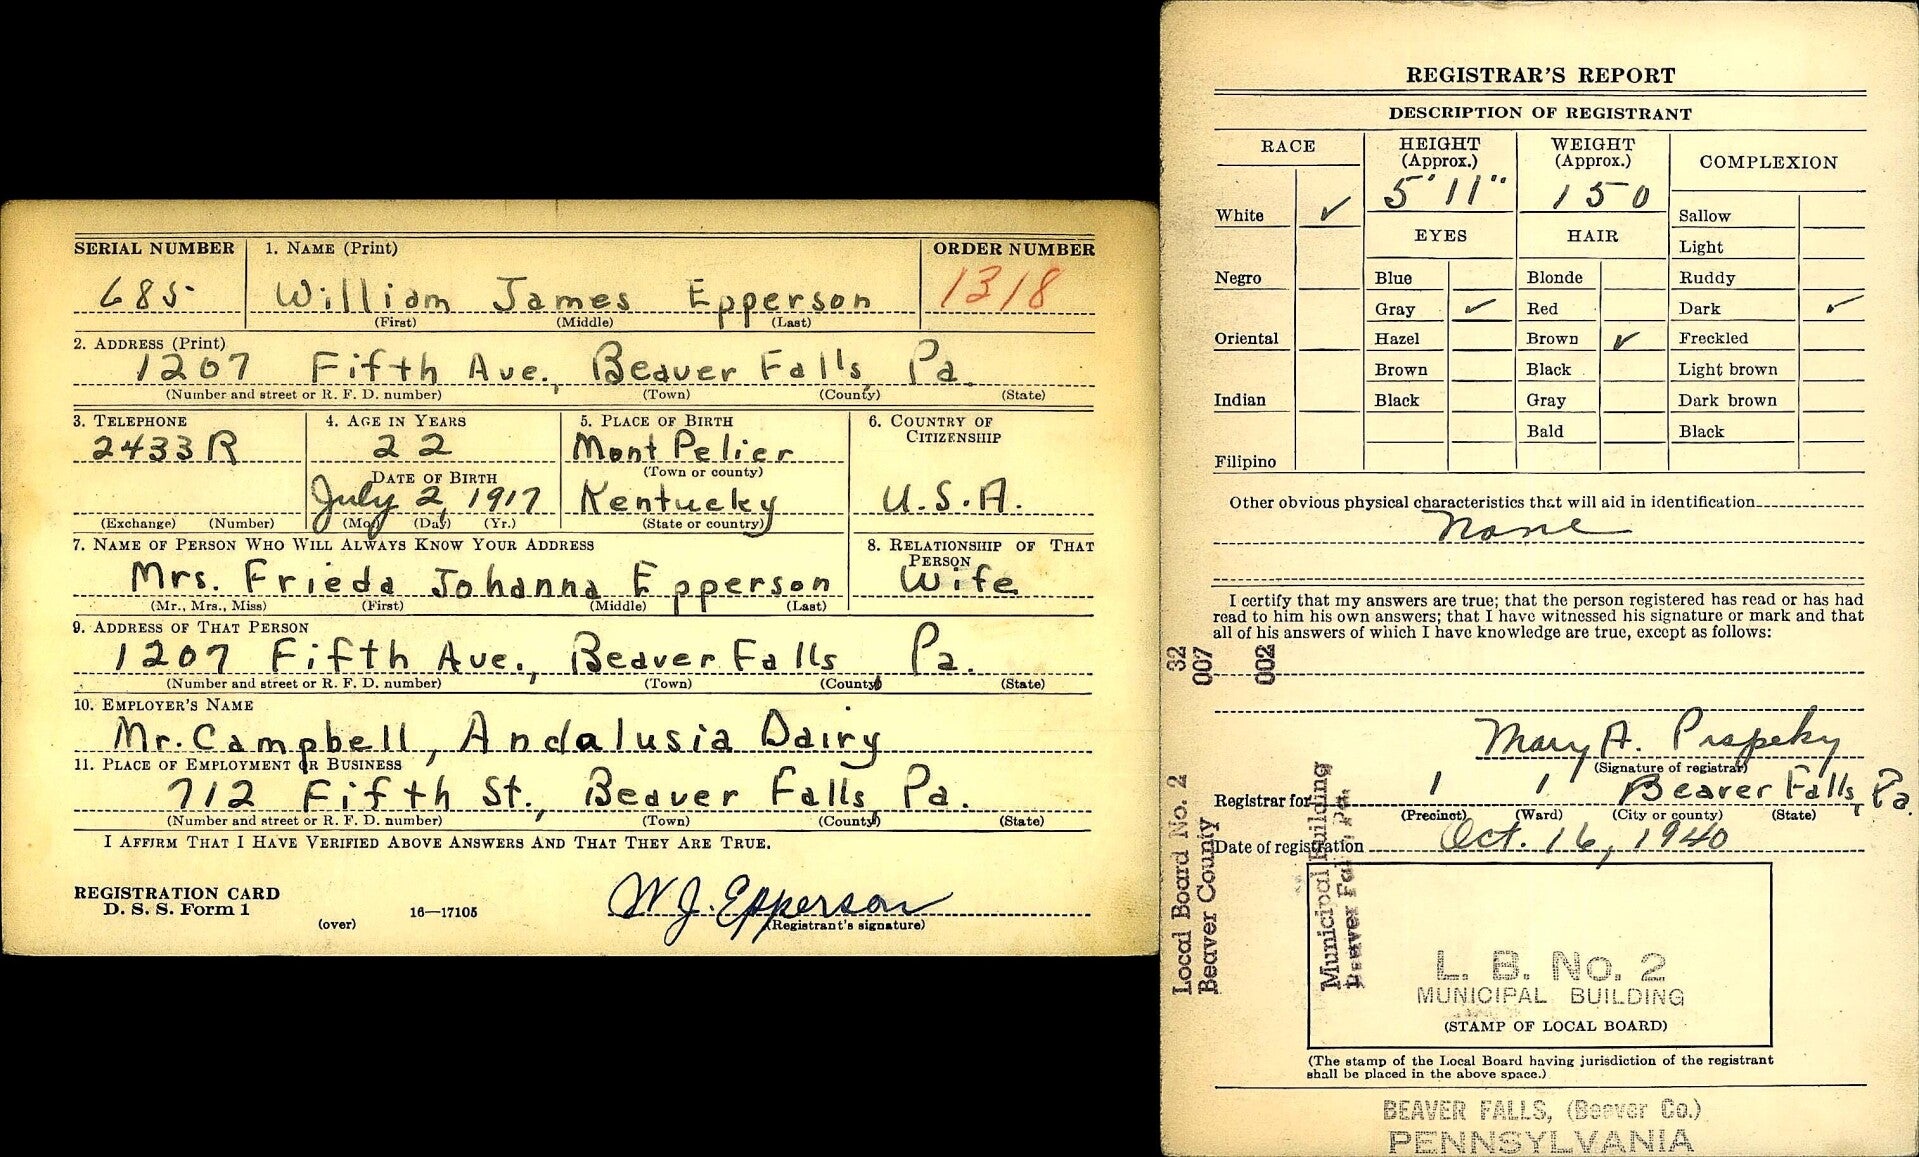 SERIAL NUMBER 1. NAME (Print) ORDER NUMBER
685 William James Epperson 1318
(First) (Middle) (Last)
2. ADDRESS (Print)
1207 Fifth Ave., Beaver Falls, Pa.
(Number and street or R. F. D. number) (Town) (County) (State)
3. TELEPHONE 4. AGE IN YEARS 5. PLACE OF BIRTH 6. COUNTRY OF
CITIZENSHIP
2433R 22 Mont Pelier
DATE OF BIRTH (Town or county)
July 2, 1917 Kentucky U.S.A.
(Exchange) (Number) (Mo.) (Day) (Yr.) (State or country)
7. NAME OF PERSON WHO WILL ALWAYS KNOW YOUR ADDRESS 8. RELATIONSHIP OF THAT
PERSON
Mrs. Frieda Johanna Epperson Wife
(Mr., Mrs., Miss) (First) (Middle) (Last)
9. ADDRESS OF THAT PERSON
1207 Fifth Ave., Beaver Falls Pa.
(Number and street or R. F. D. number) (Town) (County) (State)
10. EMPLOYER'S NAME
Mr. Campbell, Andalusia Dairy
11. PLACE OF EMPLOYMENT OR BUSINESS
712 Fifth St., Beaver Falls, Pa.
(Number and street or R. F. D. number) (Town) (County) (State)
I AFFIRM THAT I HAVE VERIFIED ABOVE ANSWERS AND THAT THEY ARE TRUE.
REGISTRATION CARD
D. S. S. Form 1
(over) 16—17105
W J. Epperson
(Registrant's signature)
REGISTRAR'S REPORT
DESCRIPTION OF REGISTRANT
RACE HEIGHT (Approx.) WEIGHT (Approx.) COMPLEXION
5' 11" 150
White ✓ Sallow
EYES HAIR Light
Negro Blue Blonde Ruddy
Gray ✓ Red Dark ✓
Oriental Hazel Brown ✓ Freckled
Brown Black Light brown
Indian Black Gray Dark brown
Bald Black
Filipino
Other obvious physical characteristics that will aid in identification
None
I certify that my answers are true; that the person registered has read or has had
read to him his own answers; that I have witnessed his signature or mark and that
all of his answers of which I have knowledge are true, except as follows:
32
007
002
Mary A.
(Signature of registrar)
Registrar for 1 1 Beaver Falls, Pa.
(Precinct) (Ward) (City or county) (State)
Date of registration Oct. 16, 1940
Local Board No. 2
Beaver County
Municipal Building
Beaver Falls, Pa.
L. B. No. 2
MUNICIPAL BUILDING
(STAMP OF LOCAL BOARD)
(The stamp of the Local Board having jurisdiction of the registrant
shall be placed in the above space.)
BEAVER FALLS, (Beaver Co.)
PENNSYLVANIA